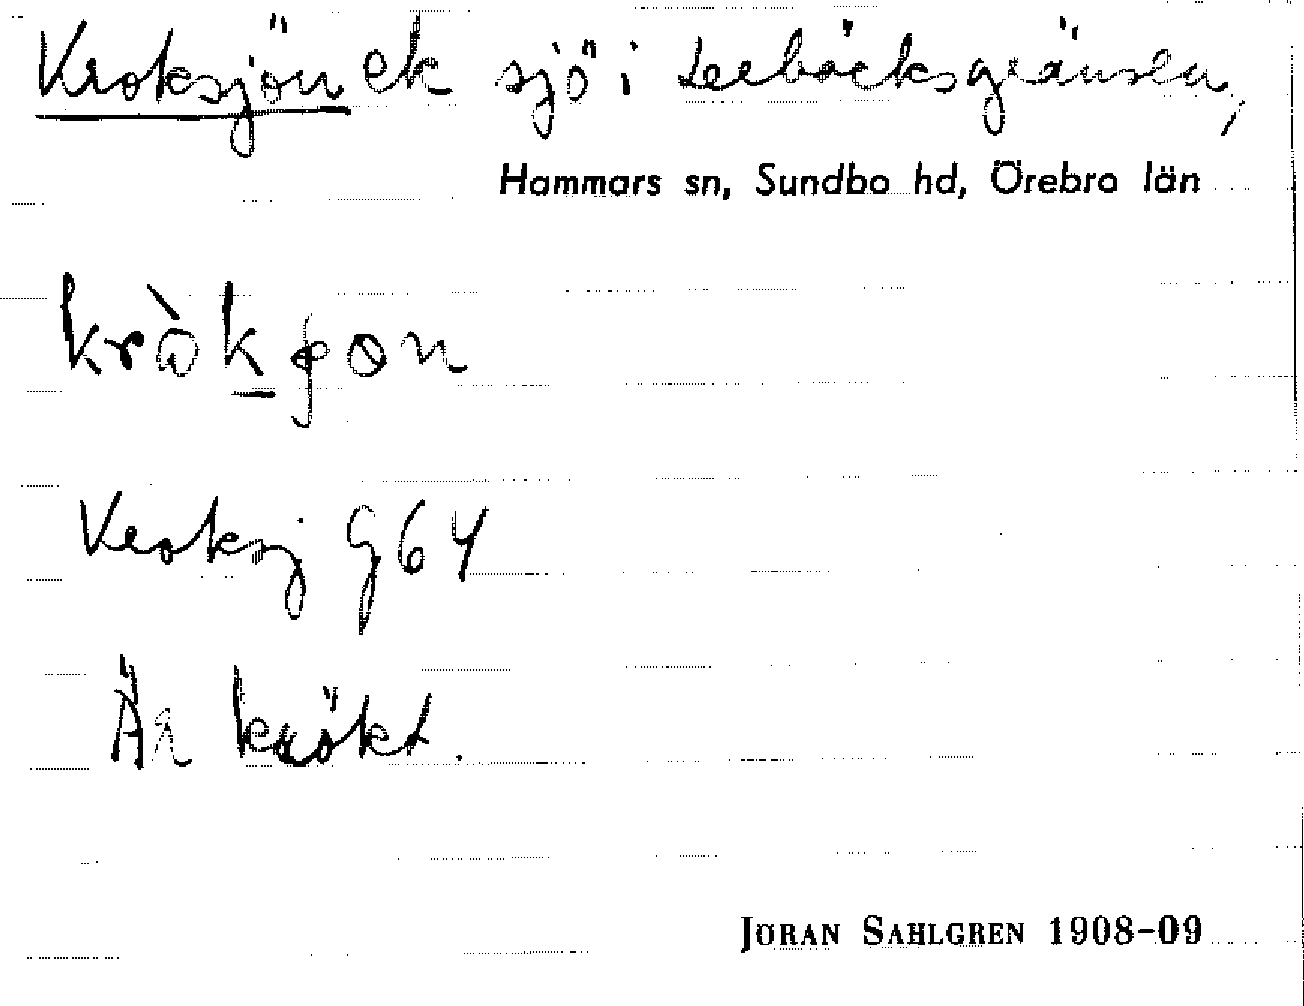 Kroksjön ek sjö i Lerbäcksgränsen,
Hammars sn, Sundbo hd, Örebro län
Kroksj G64
Är krökt.
JÖRAN SAHLGREN 1908-09